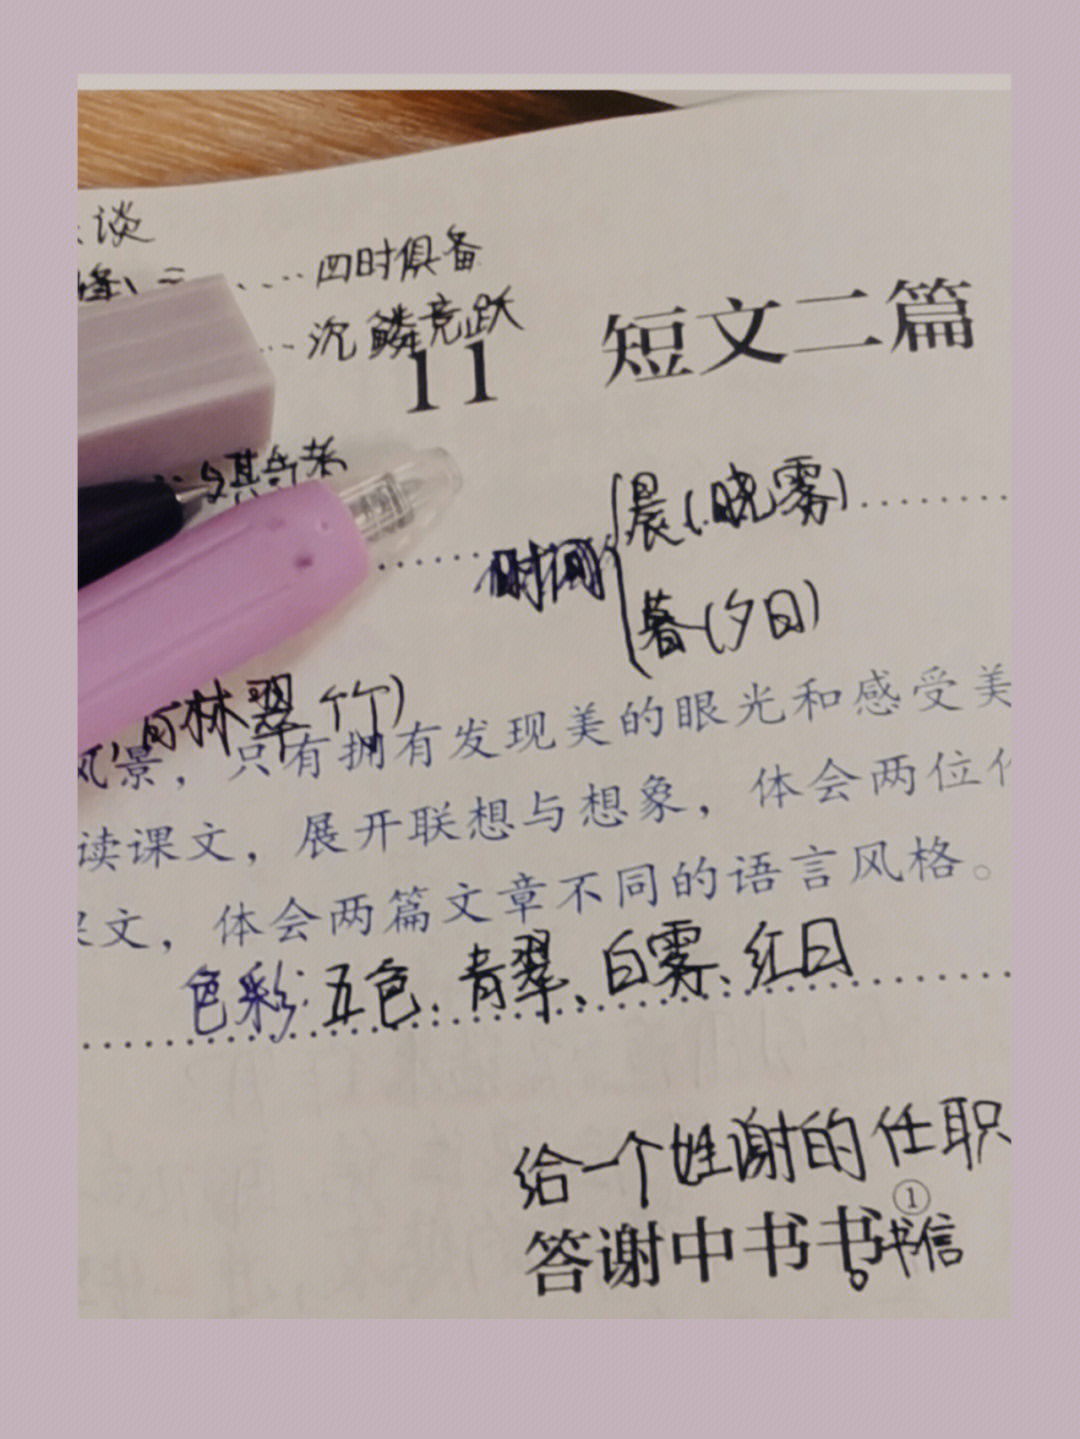 谈
四时俱备
沉鳞竞跃
11 短文二篇
时间 晨(晓雾)
暮(夕日)
林翠竹)
风景，只有拥有发现美的眼光和感受美
读课文，展开联想与想象，体会两位
文，体会两篇文章不同的语言风格。
色彩:五色、青翠、白雾、红日
给一个姓谢的任职
答谢中书书①书信